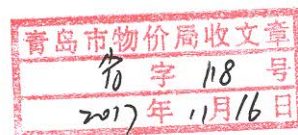 青岛市物价局收文章
字 118 号
2017 年 11 月 16 日